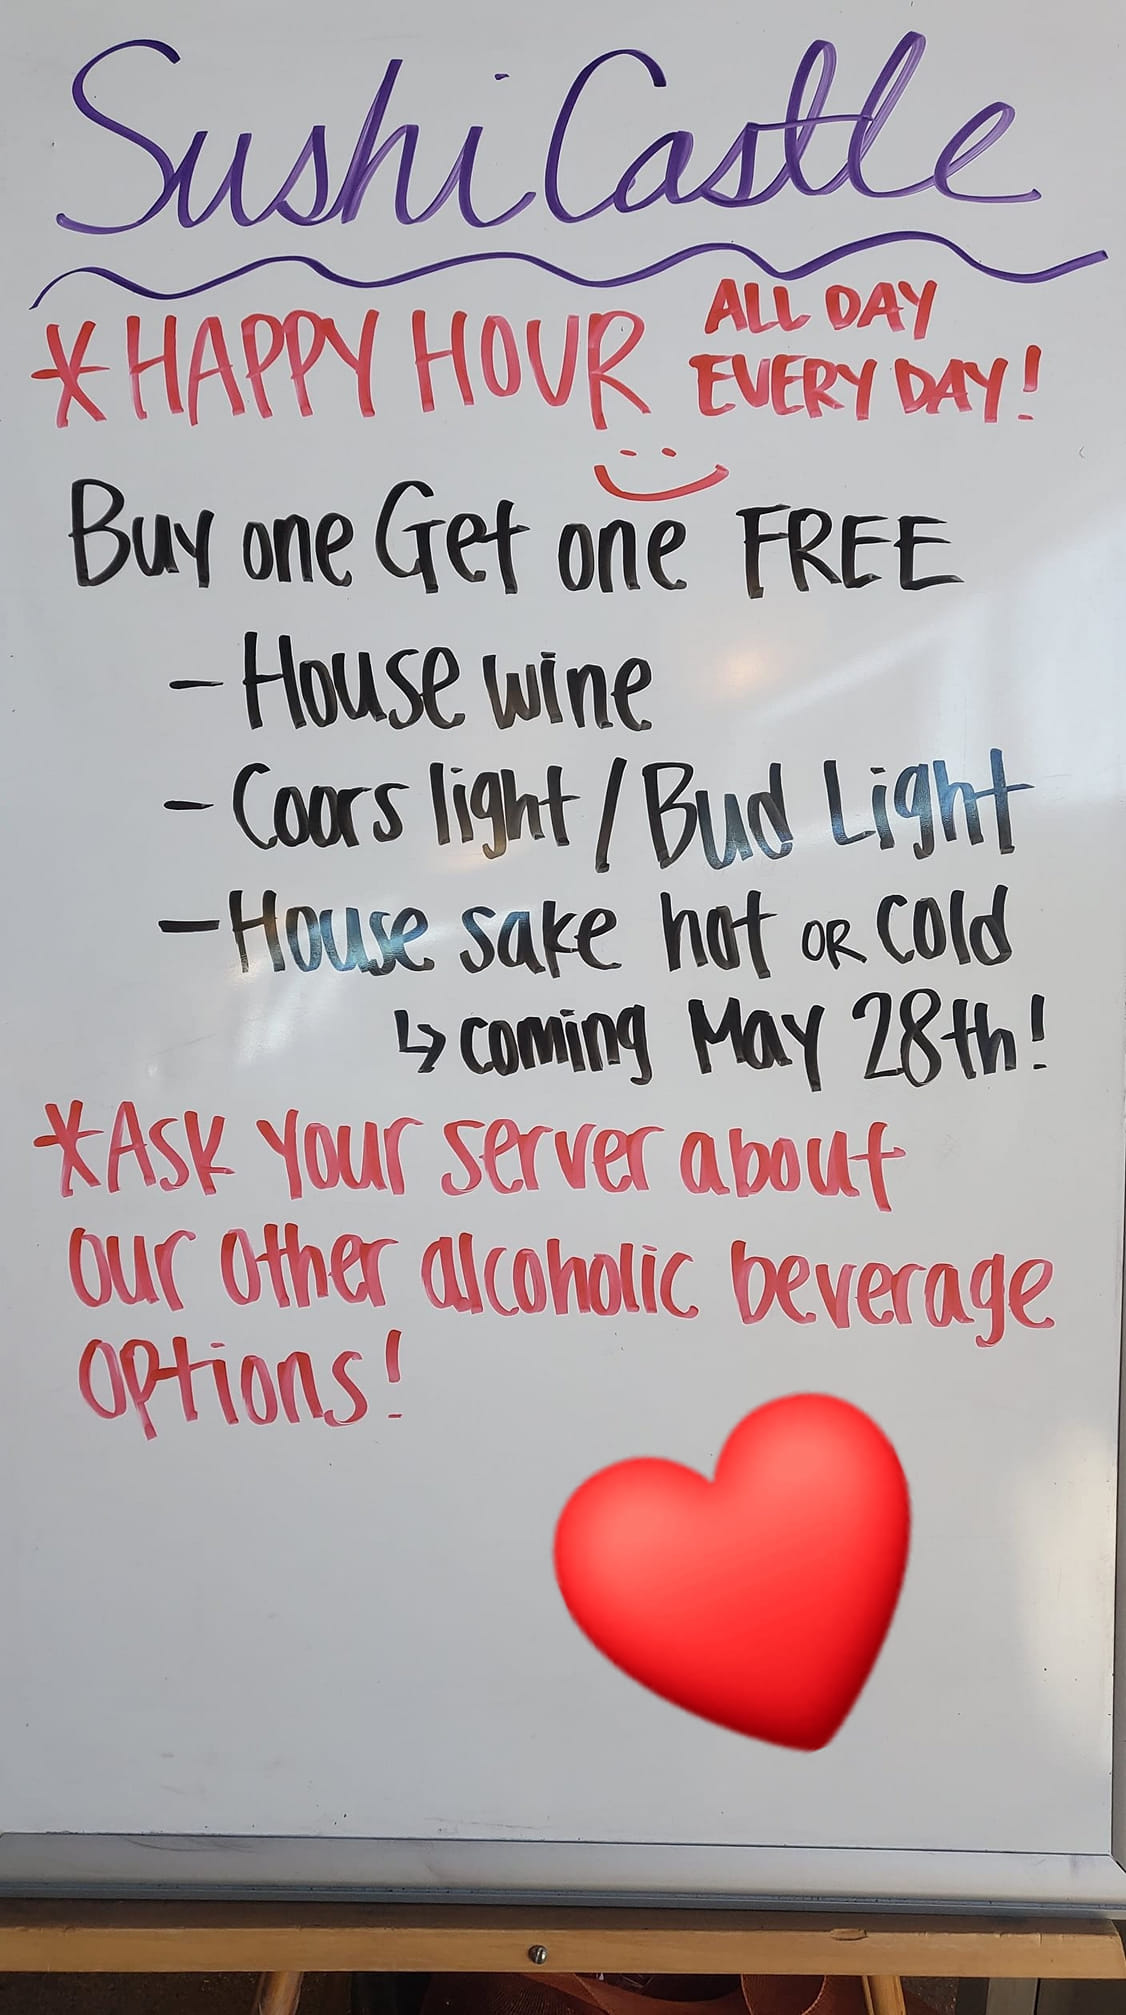 Sushi Castle
*HAPPY HOUR ALL DAY
EVERY DAY!
Buy one Get one FREE
- House wine
- Coors light / Bud Light
- House sake hot OR cold
↳ coming May 28th!
*Ask your server about
our other alcoholic beverage
options!